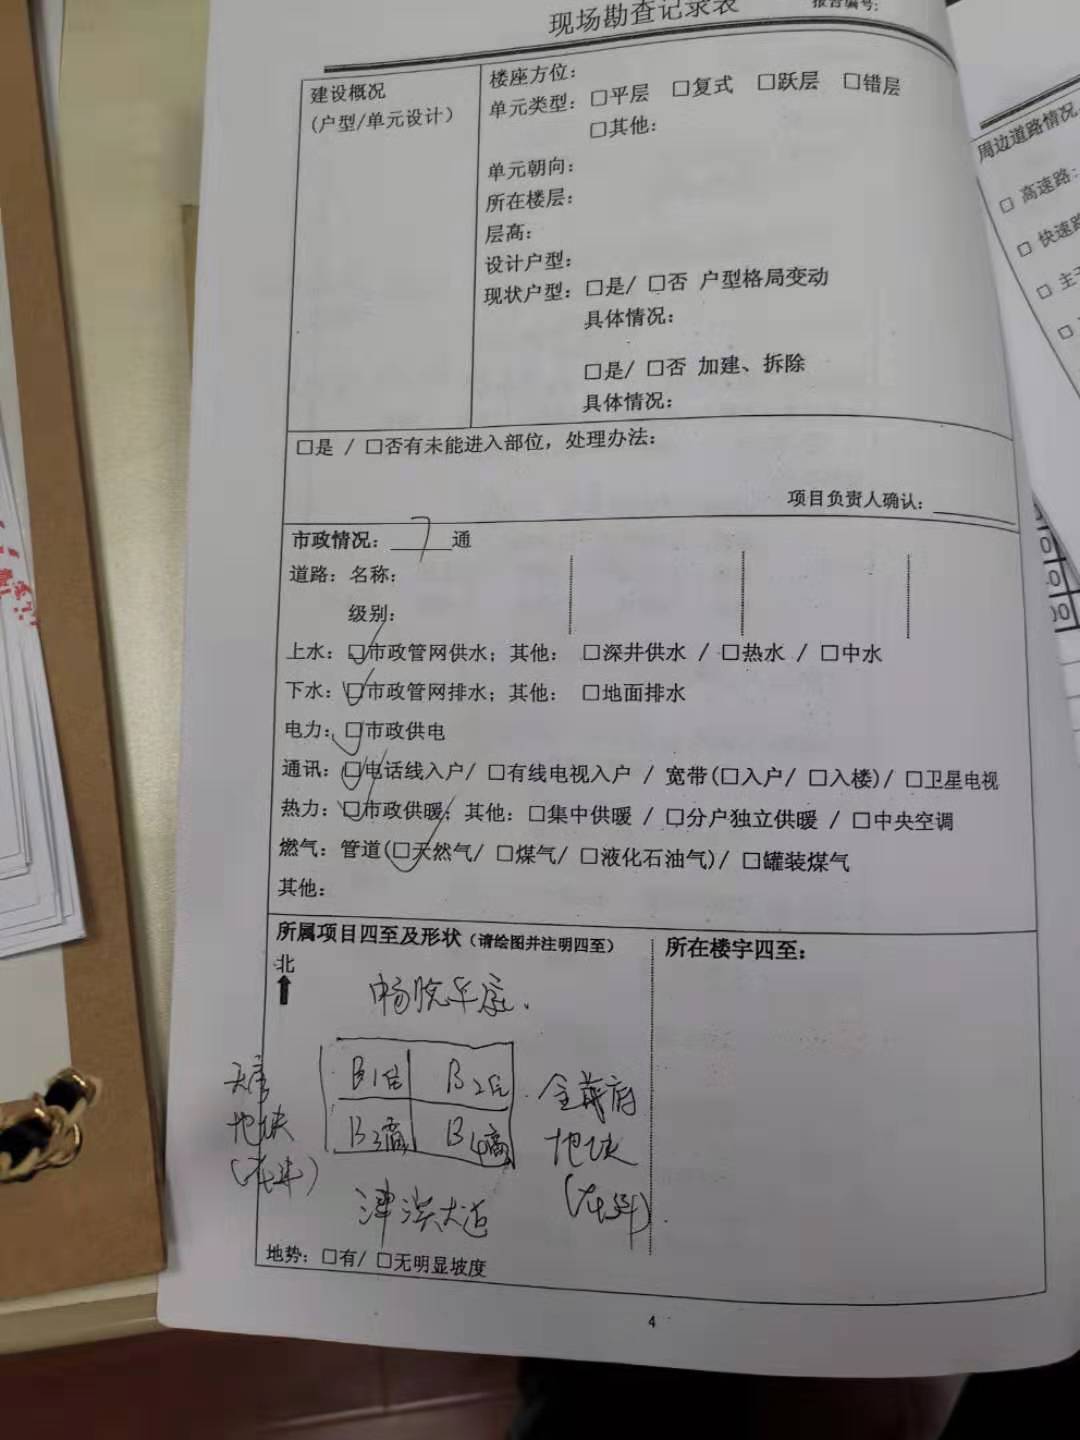 现场勘查记录表
报告编号:
建设概况
(户型/单元设计)
楼座方位:
单元类型: □平层 □复式 □跃层 □错层
□其他:
单元朝向:
所在楼层:
层高:
设计户型:
现状户型: □是/ □否 户型格局变动
具体情况:
□是/ □否 加建、拆除
具体情况:
□是 / □否有未能进入部位, 处理办法:
项目负责人确认:
市政情况: 7 通
道路: 名称:
级别:
上水: □市政管网供水; 其他: □深井供水 / □热水 / □中水
下水: □市政管网排水; 其他: □地面排水
电力: □市政供电
通讯: □电话线入户/ □有线电视入户 / 宽带(□入户/ □入楼)/ □卫星电视
热力: □市政供暖; 其他: □集中供暖 / □分户独立供暖 / □中央空调
燃气: 管道(□天然气/ □煤气/ □液化石油气)/ □罐装煤气
其他:
所属项目四至及形状 (请绘图并注明四至)
所在楼宇四至:
北
B1住 B2住
B3商 B4商
地块
(在建)
府
地块
(在建)
津滨大道
地势: □有/ □无明显坡度
4
周边道路情况
□ 高速路:
□ 快速路
□ 主